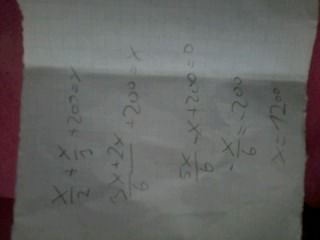 x/2 + x/3 + 200 = x
3x+2x/6 + 200 = x
5x/6 - x + 200 = 0
-x/6 = -200
x = 1200